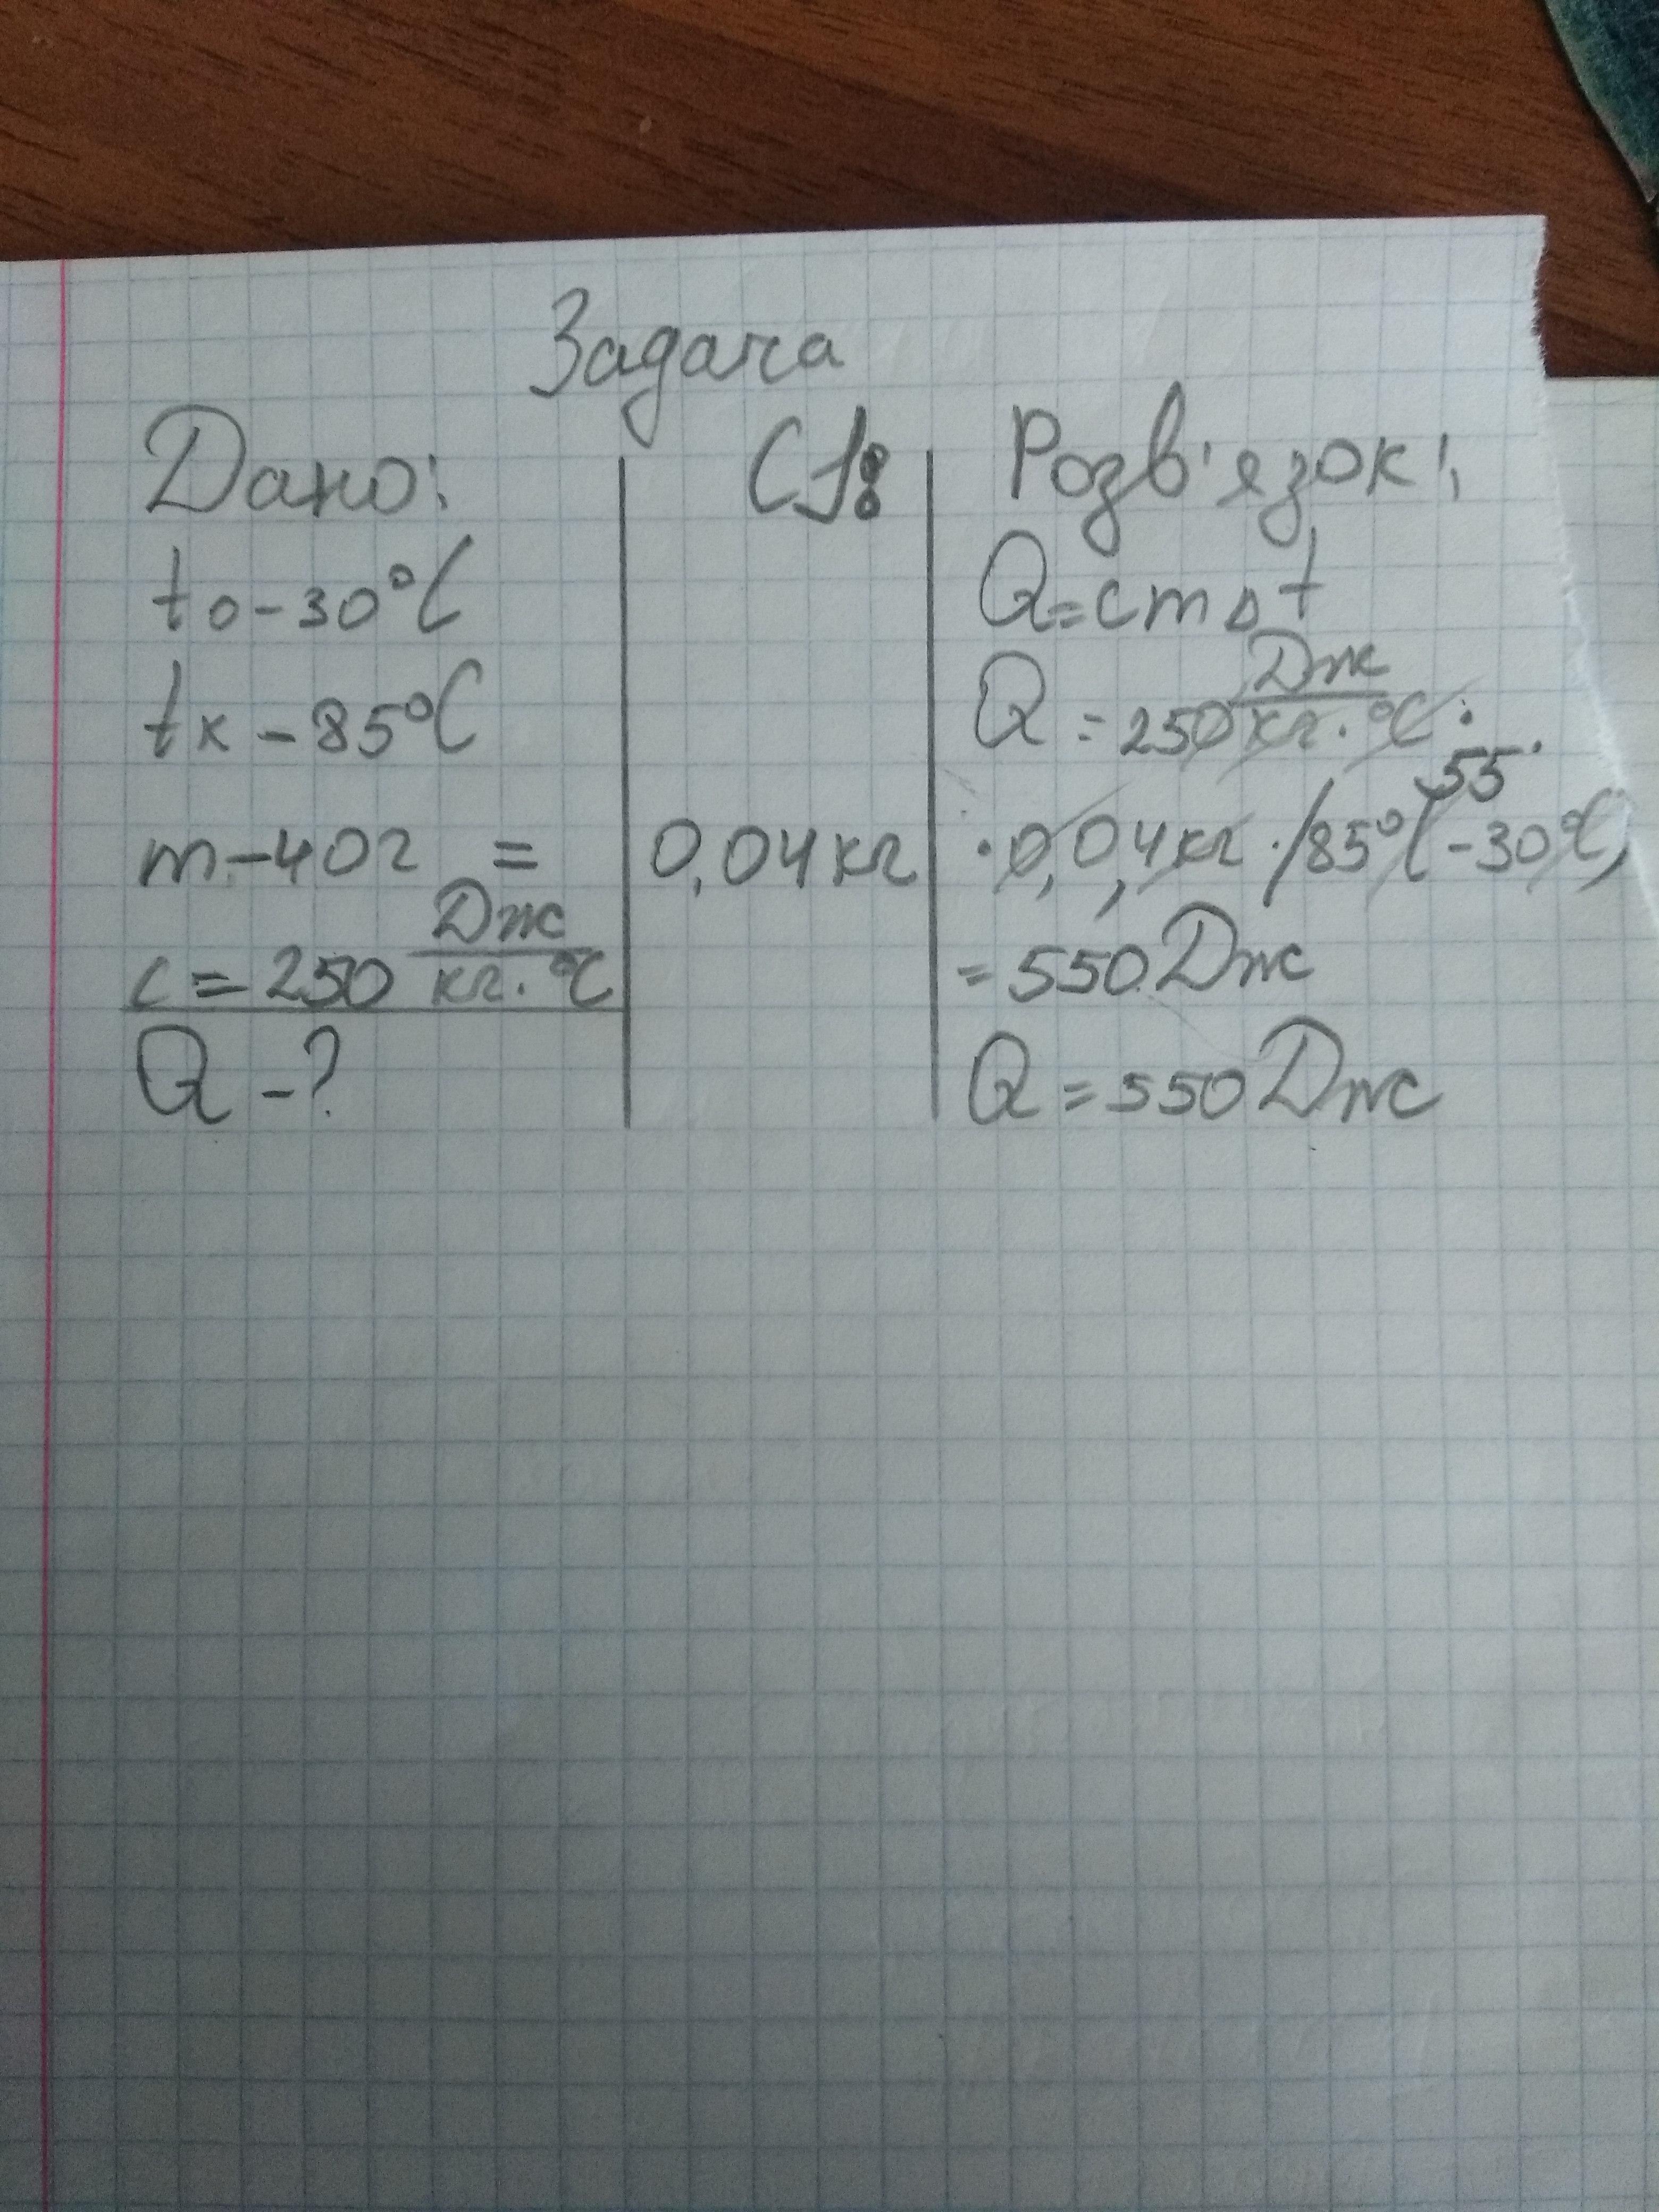 Задача
Дано:
t₀-30°C
tк-85°C
m-40г =
c=250 Дж/кг·°C
Q-?
СІ:
0,04кг
Розв'язок:
Q=cmΔt
Q=250 Дж/кг·°C ·
55·
·0,04кг·(85°C-30°C)
=550Дж
Q=550Дж